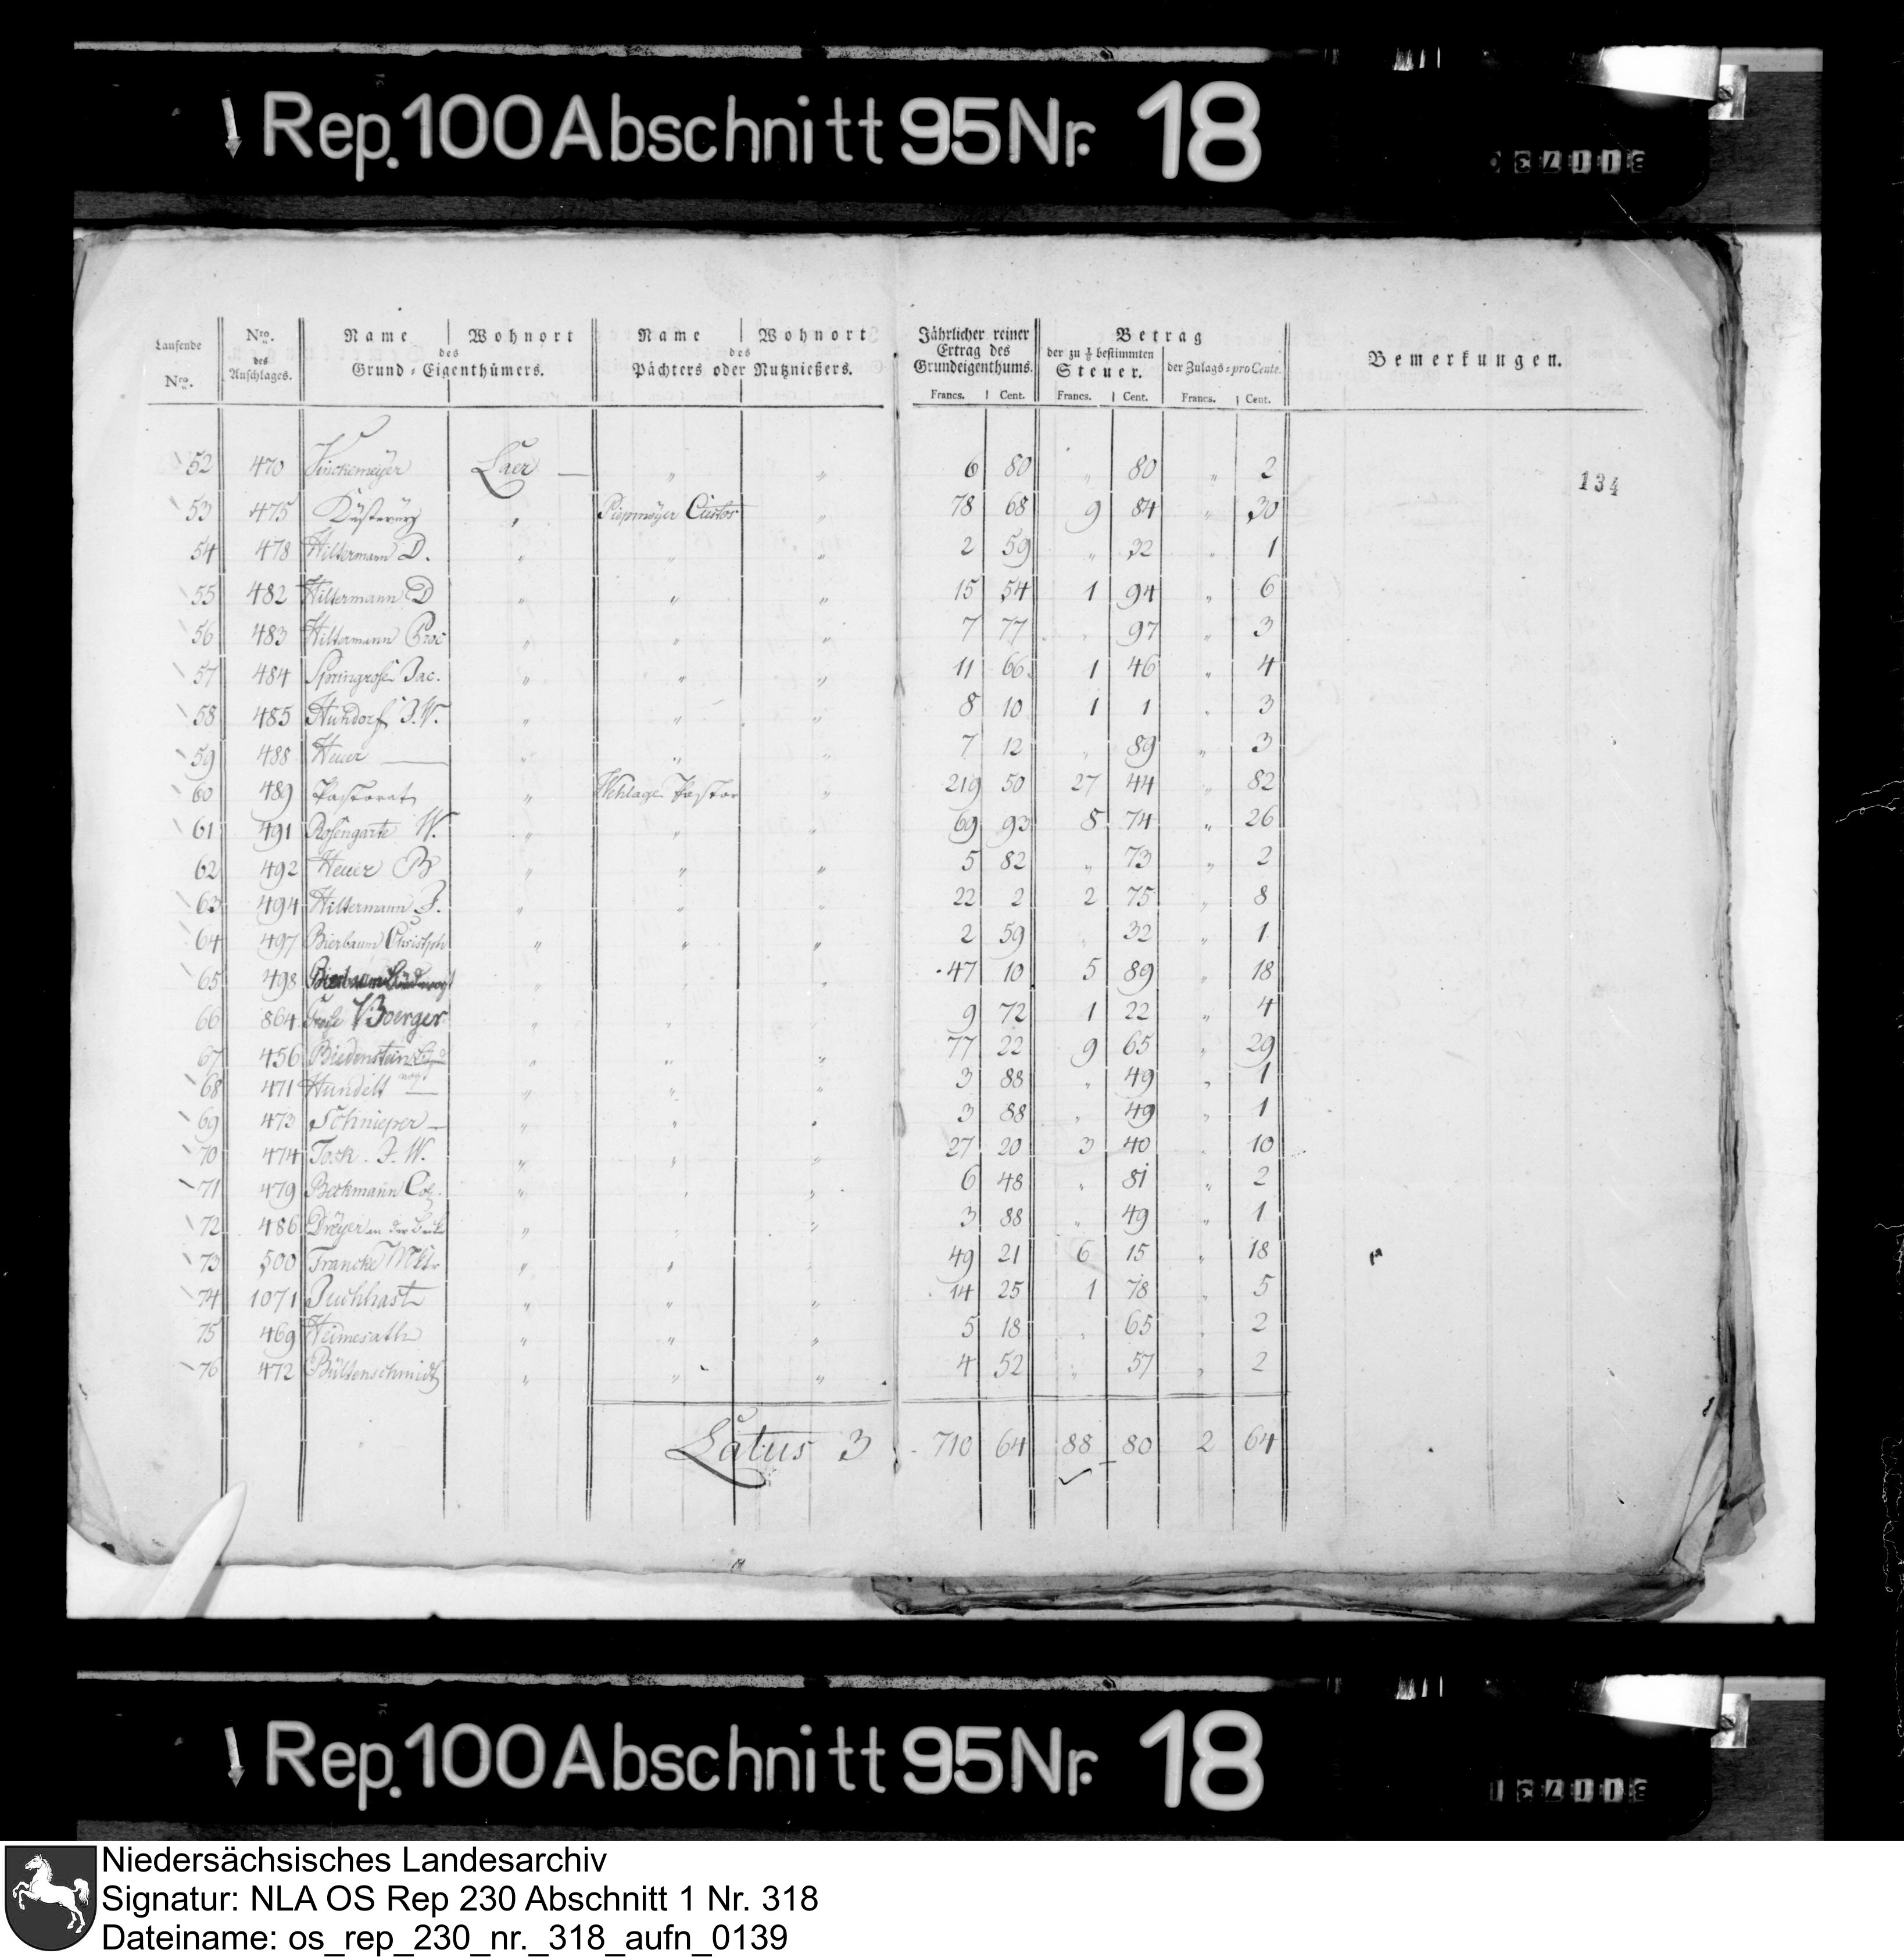 Rep. 100 Abschnitt 95 Nr. 18
Laufende Nro. | Nro. des Anschlages. | Name | Wohnort | Name | Wohnort | Jährlicher reiner Ertrag des Grundeigenthums. | Betrag | Bemerkungen.
des Grund-Eigenthümers. | des Pächters oder Nutznießers. | der zu 1/8 bestimmten Steuer. | der Zulags-pro Cente.
Francs. | Cent. | Francs. | Cent. | Francs. | Cent.
134
52 470 Finckemeyer Laer — " " 6 80 " 80 " 2
53 475 Küsterey " Piepmeyer Custos " 78 68 9 84 " 30
54 478 Hiltermann D. " " " 2 59 " 32 " 1
55 482 Hiltermann D " " " 15 54 1 94 " 6
56 483 Hiltermann Proc " " " 7 77 " 97 " 3
57 484 Springrose Jac. " " " 11 66 1 46 " 4
58 485 Huhdorf J. W. " " " 8 10 1 1 " 3
59 488 Heuer — " " " 7 12 " 89 " 3
60 489 Pastorat " Wehlage Pastor " 219 50 27 44 " 82
61 491 Rosengarte W. " " " 69 93 8 74 " 26
62 492 Heuer B " " " 5 82 " 73 " 2
63 494 Hiltermann F. " " " 22 2 2 75 " 8
64 497 Bierbaum Christoph " " " 2 59 " 32 " 1
65 498 " " " 47 10 5 89 " 18
66 864 Boerger " " " 9 72 1 22 " 4
67 456 Biedenstein " " " 77 22 9 65 " 29
68 471 Hundelt — " " " 3 88 " 49 " 1
69 473 Schnieper — " " " 3 88 " 49 " 1
70 474 Task. J. W. " " " 27 20 3 40 " 10
71 479 Beckmann Col. " " " 6 48 " 81 " 2
72 486 Dreyer in der " " " 3 88 " 49 " 1
73 500 Francke " " " 49 21 6 15 " 18
74 1071 Buchhast " " " 14 25 1 78 " 5
75 469 Heimesath " " " 5 18 " 65 " 2
76 472 Bültenschmidt " " " 4 52 " 57 " 2
Latus 3 710 64 88 80 2 64
Rep. 100 Abschnitt 95 Nr. 18
Niedersächsisches Landesarchiv
Signatur: NLA OS Rep 230 Abschnitt 1 Nr. 318
Dateiname: os_rep_230_nr._318_aufn_0139